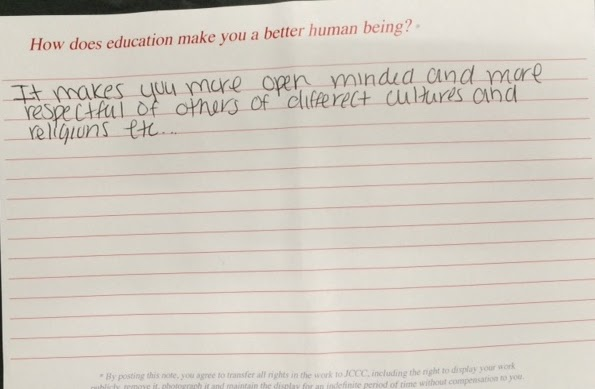 How does education make you a better human being? *
It makes you more open minded and more
respectful of others of differect cultures and
religions etc...
* By posting this note, you agree to transfer all rights in the work to JCCC, including the right to display your work
publicly, remove it, photograph it and maintain the display for an indefinite period of time without compensation to you.